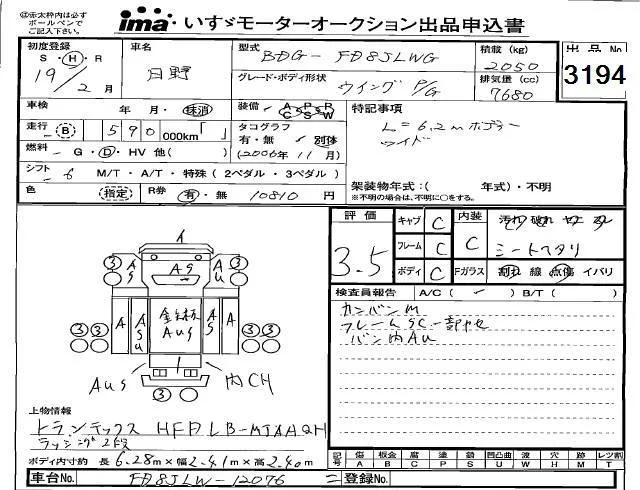 ◎赤太枠内は必ず
ボールペンで
ご記入下さい。
ima いすゞモーターオークション出品申込書
初度登録 S・H・R 19/2月
車名 日野
型式 BDG-FD8JLWG
グレード・ボディ形状 ウイング P/G
積載 (kg) 2050
排気量 (cc) 7680
出品No 3194
車検 年 月・抹消
装備 A P R C S W
特記事項
L=6.2mボデー
ワイド
走行 B 590 000km「 」
タコグラフ 有・無 別体
(2006年11月)
燃料 G・D・HV 他( )
シフト 6 M/T・A/T・特殊(2ペダル・3ペダル)
架装物年式:( 年式)・不明
※不明の場合は、不明に○をする。
色 (指定) R券 有・無 10810円
評価 3.5
キャブ C 内装 C 汚れ
フレーム C シートヘタリ
ボディ C Fガラス 割れ 線 点傷 イバリ
検査員報告 A/C( ✓ ) B/T( )
カンバンM
フレームSC一部サビ
バン内AU
3 3 3 3 3 3 3
A AS A A AS A
AUS
AUS 内CH
上物情報
トランテックス HFDLB-MJAH2H
ラッシング2段
ボディ内寸約 長6.28m×幅2.41m×高2.40m
記号 傷A 板金B 腐C 塗P 錆S 凹凸曲U 波W 穴H 跡M レツ割T
車台No. FD8JLW-12076 = 登録No.